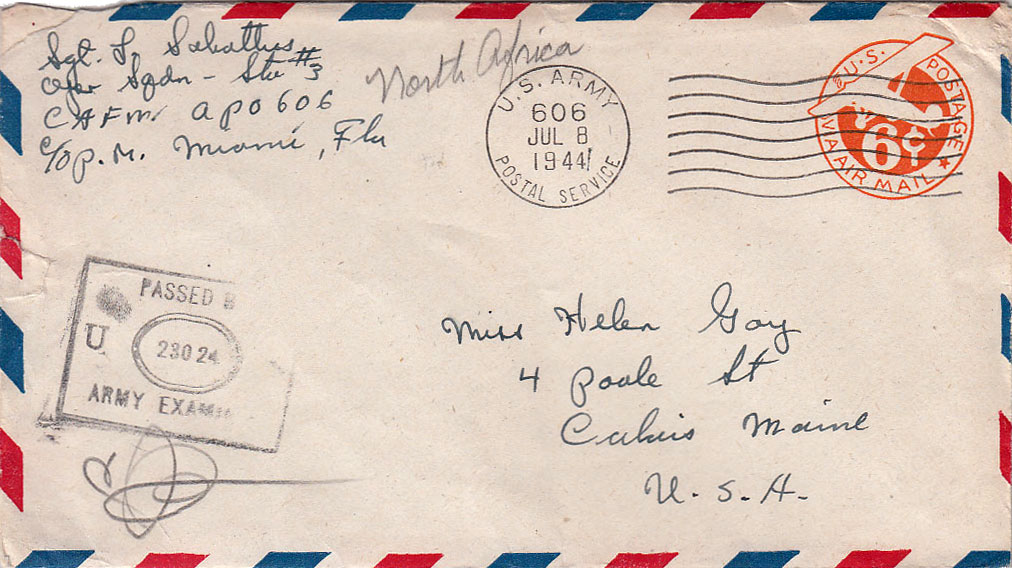 Sgt. L. Sabattus
Oper Sqdn - Sta #3
CAFW APO 606
c/o P.M. Miami, Fla
North Africa
U.S. ARMY
606
JUL 8
1944
POSTAL SERVICE
U.S. POSTAGE
6¢
VIA AIR MAIL
PASSED B
U
23024
ARMY EXAMI
Miss Helen Gay
4 Poole St
Calais Maine
U.S.A.